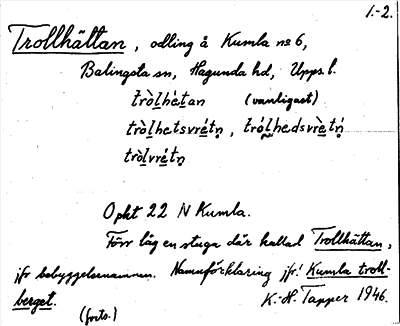 1.-2.
Trollhättan, odling å Kumla no 6,
Balingsta sn, Hagunda hd, Upps. l.
tròḷhétan (vanligast)
tròḷhetsvrétṇ, tróḷhedsvrètṇ́
tròḷvrétṇ
Opkt 22 N Kumla.
Förr låg en stuga där kallad Trollhättan,
jfr bebyggelsenamnen. Namnförklaring jfr! Kumla troll-
berget. K.-H. Tapper 1946.
(forts.)